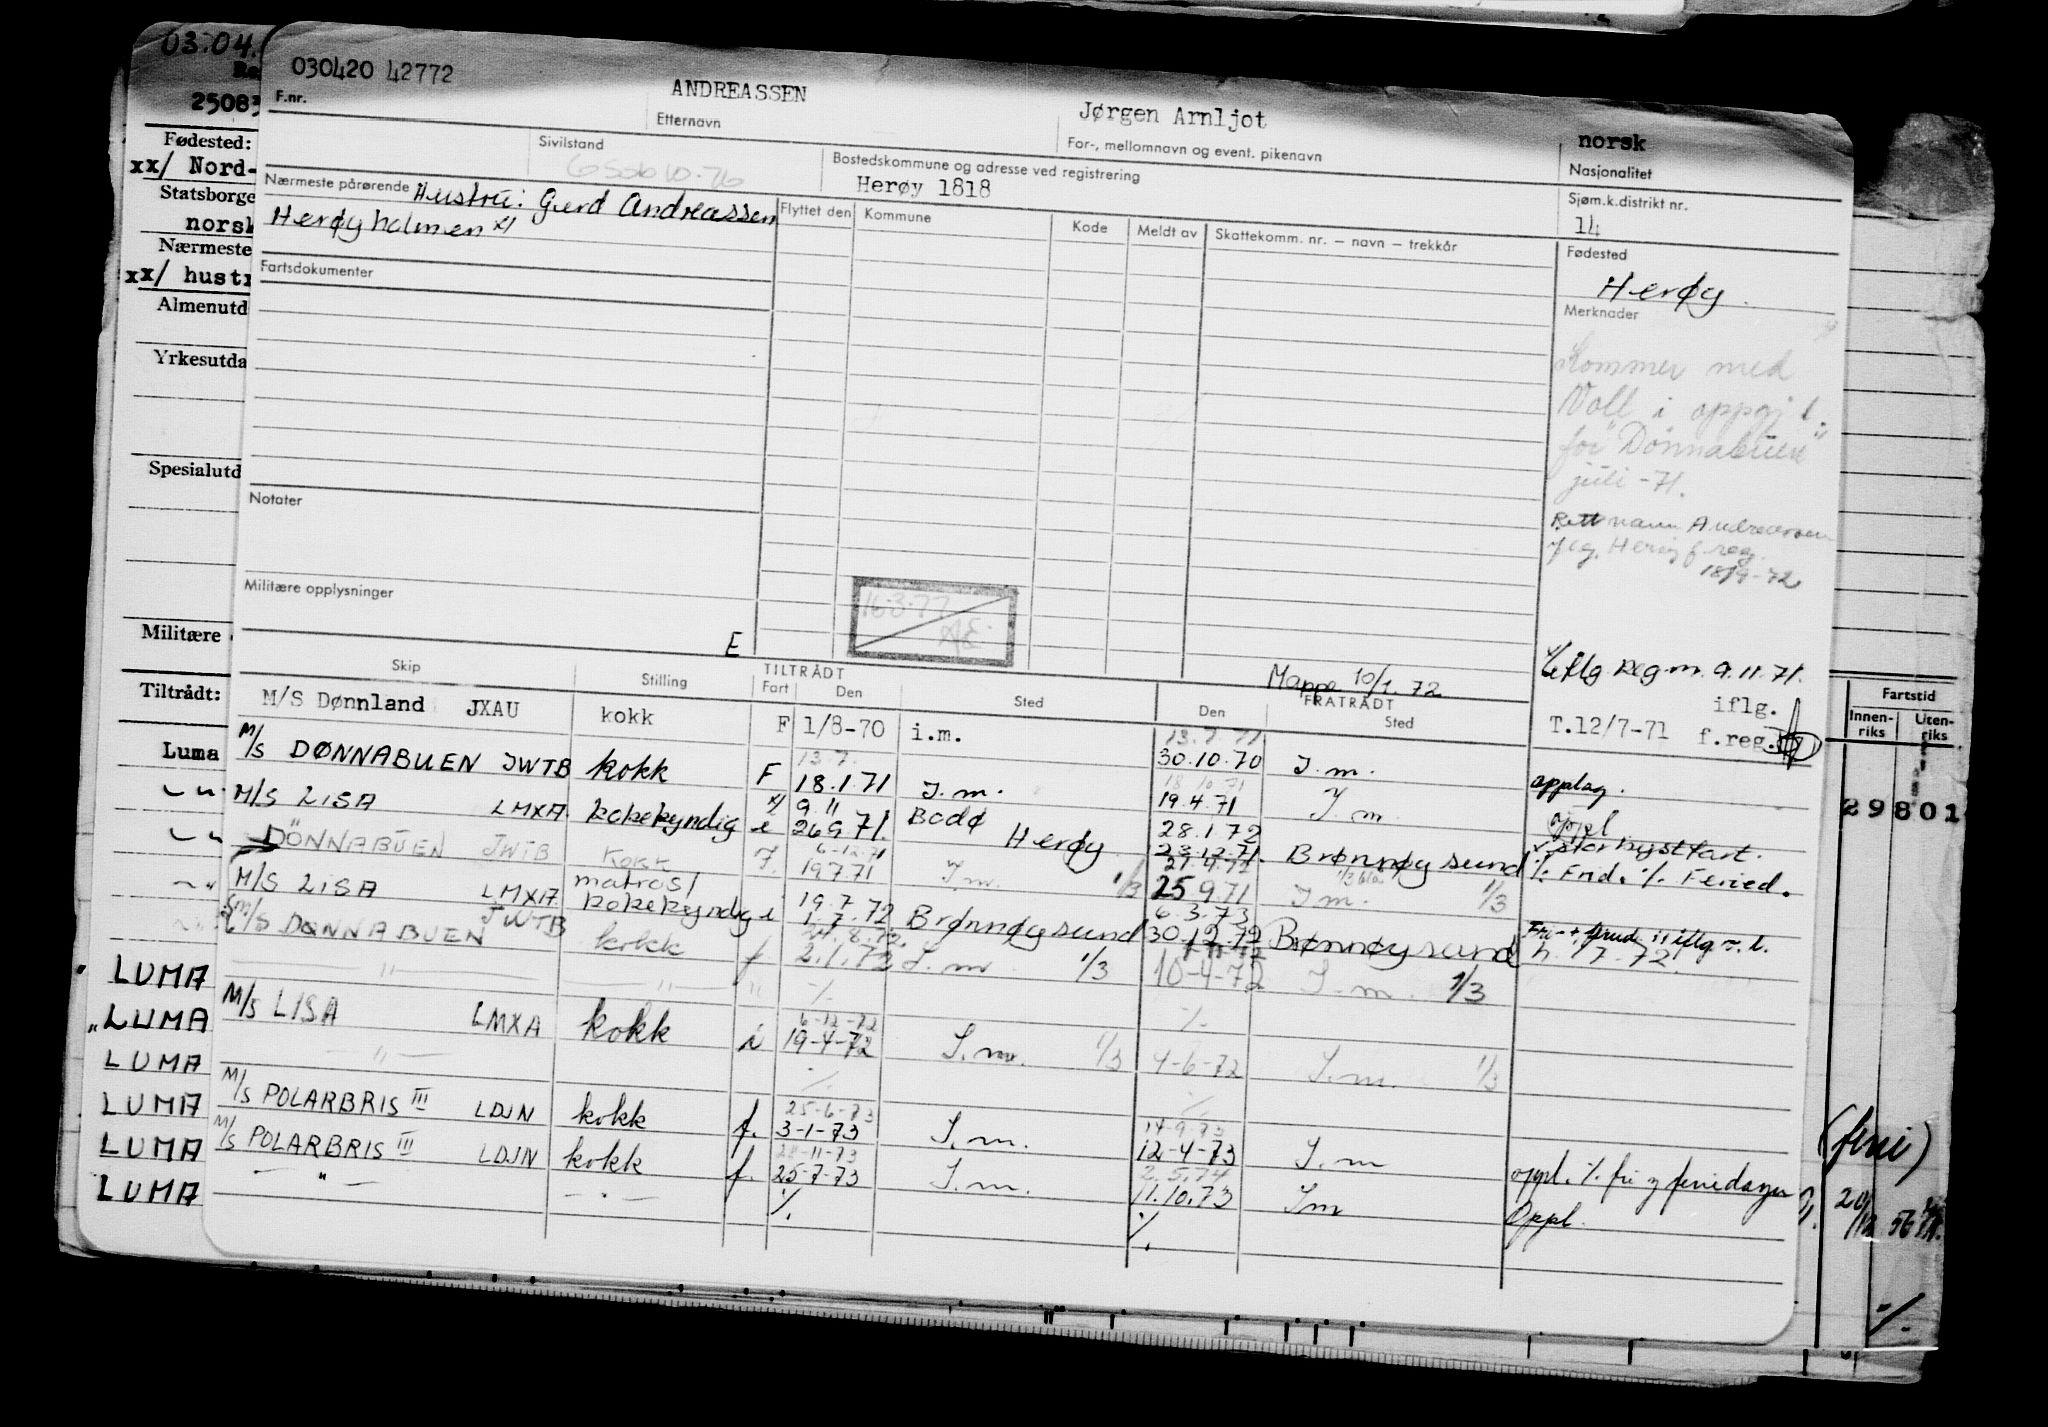 03.04.
030420 42772
25083
F.nr.
ANDREASSEN
Etternavn
Jørgen Arnljot
For-, mellomnavn og event. pikenavn
norsk
Nasjonalitet
Fødested:
xx/ Nord-
Statsborge
norsk
Nærmeste
xx/ hustr
Almenutd
Yrkesutda
Spesialutd
Militære
Tiltrådt:
Luma
Sivilstand
Bostedskommune og adresse ved registrering
Herøy 1818
Sjøm.k.distrikt nr.
14
Nærmeste pårørende Hustru: Gerd Andreassen
Herøyholmen x/
Flyttet den
Kommune
Kode
Meldt av
Skattekomm. nr. – navn – trekkår
Fødested
Herøy
Fartsdokumenter
Merknader
Kommer med
Voll i oppgj.
for "Dønnabuen"
juli -71.
Rett navn Andreassen
Herøy f.reg.
18/9-72
Notater
Militære opplysninger
16.3.77
AE
E
iflg reg.m. 9.11.71.
Mappe 10/1.72
Skip
Stilling
TILTRÅDT
Fart
Den
Sted
FRATRÅDT
Den
Sted
iflg.
T.12/7-71 f.reg.
M/S Dønnland JXAU kokk F 1/8-70 i.m. 30.10.70 I.m.
13.7. 13.7.71.
M/S DØNNABUEN JWTB kokk F 18.1.71 I.m. 19.4.71 I.m. opplag.
18.10.71
M/S LISA LMXA kokekyndig i x/ 9.11 26.9.71. Bodø Herøy 28.1.72 23.12.71. Brønnøysund oppl storkystfart.
DÖNNABUEN JWTB kokk F. 6-12-71 19.7.71 I.m. 1/3 25.9.71 I.m. 1/3 % Frid. % Feried.
M/S LISA LMXA matros/ kokekyndig i 19.7.72 1.7.72 Brønnøysund 6.3.73 30.12.72 Brønnøysund
M/S DØNNABUEN JWTB kokk f 2.1.72 I.m. 1/3 10-4-72 I.m. 1/3
— " — — " — " % %
M/S LISA LMXA kokk i 6-12-72 19-4-72 I.m. 1/3 4-6-72 I.m. 1/3
— " — % %
M/S POLARBRIS III LDJN kokk f. 25-6-73 3-1-73 I.m. 14-9-73 12-4-73 I.m oppl. % fri og feriedager
M/S POLARBRIS III LDJN kokk f. 28-11-73 25-7-73 I.m. 2.5.74 11.10.73 Im Oppl.
— " — — " — % %
LUMA
"LUMA
LUMA
LUMA
LUMA
LUMA
Fartstid
Innen-
riks
Uten-
riks
29801
(ferie)
%